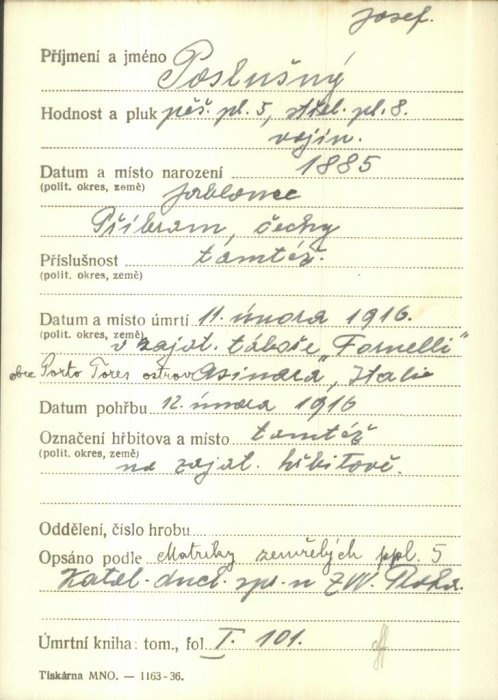 Josef.
Příjmení a jméno Poslušný
Hodnost a pluk pěš. pl. 5, střel. pl. 8.
vojín.
Datum a místo narození 1885
(polit. okres, země) Jablonec
Příbram, Čechy
Příslušnost tamtéž.
(polit. okres, země)
Datum a místo úmrtí 11. února 1916.
(polit. okres, země) v zajat. táboře "Fornelli"
obce Porto Tores ostrov Asinara, Italie
Datum pohřbu 12. února 1916
Označení hřbitova a místo tamtéž
(polit. okres, země)
na zajat. hřbitově.
Oddělení, číslo hrobu
Opsáno podle Matriky zemřelých ppl. 5
Katol. duch. spr. u ZVV. Praha.
Úmrtní kniha: tom., fol. I. 101.
Tiskárna MNO. — 1163-36.